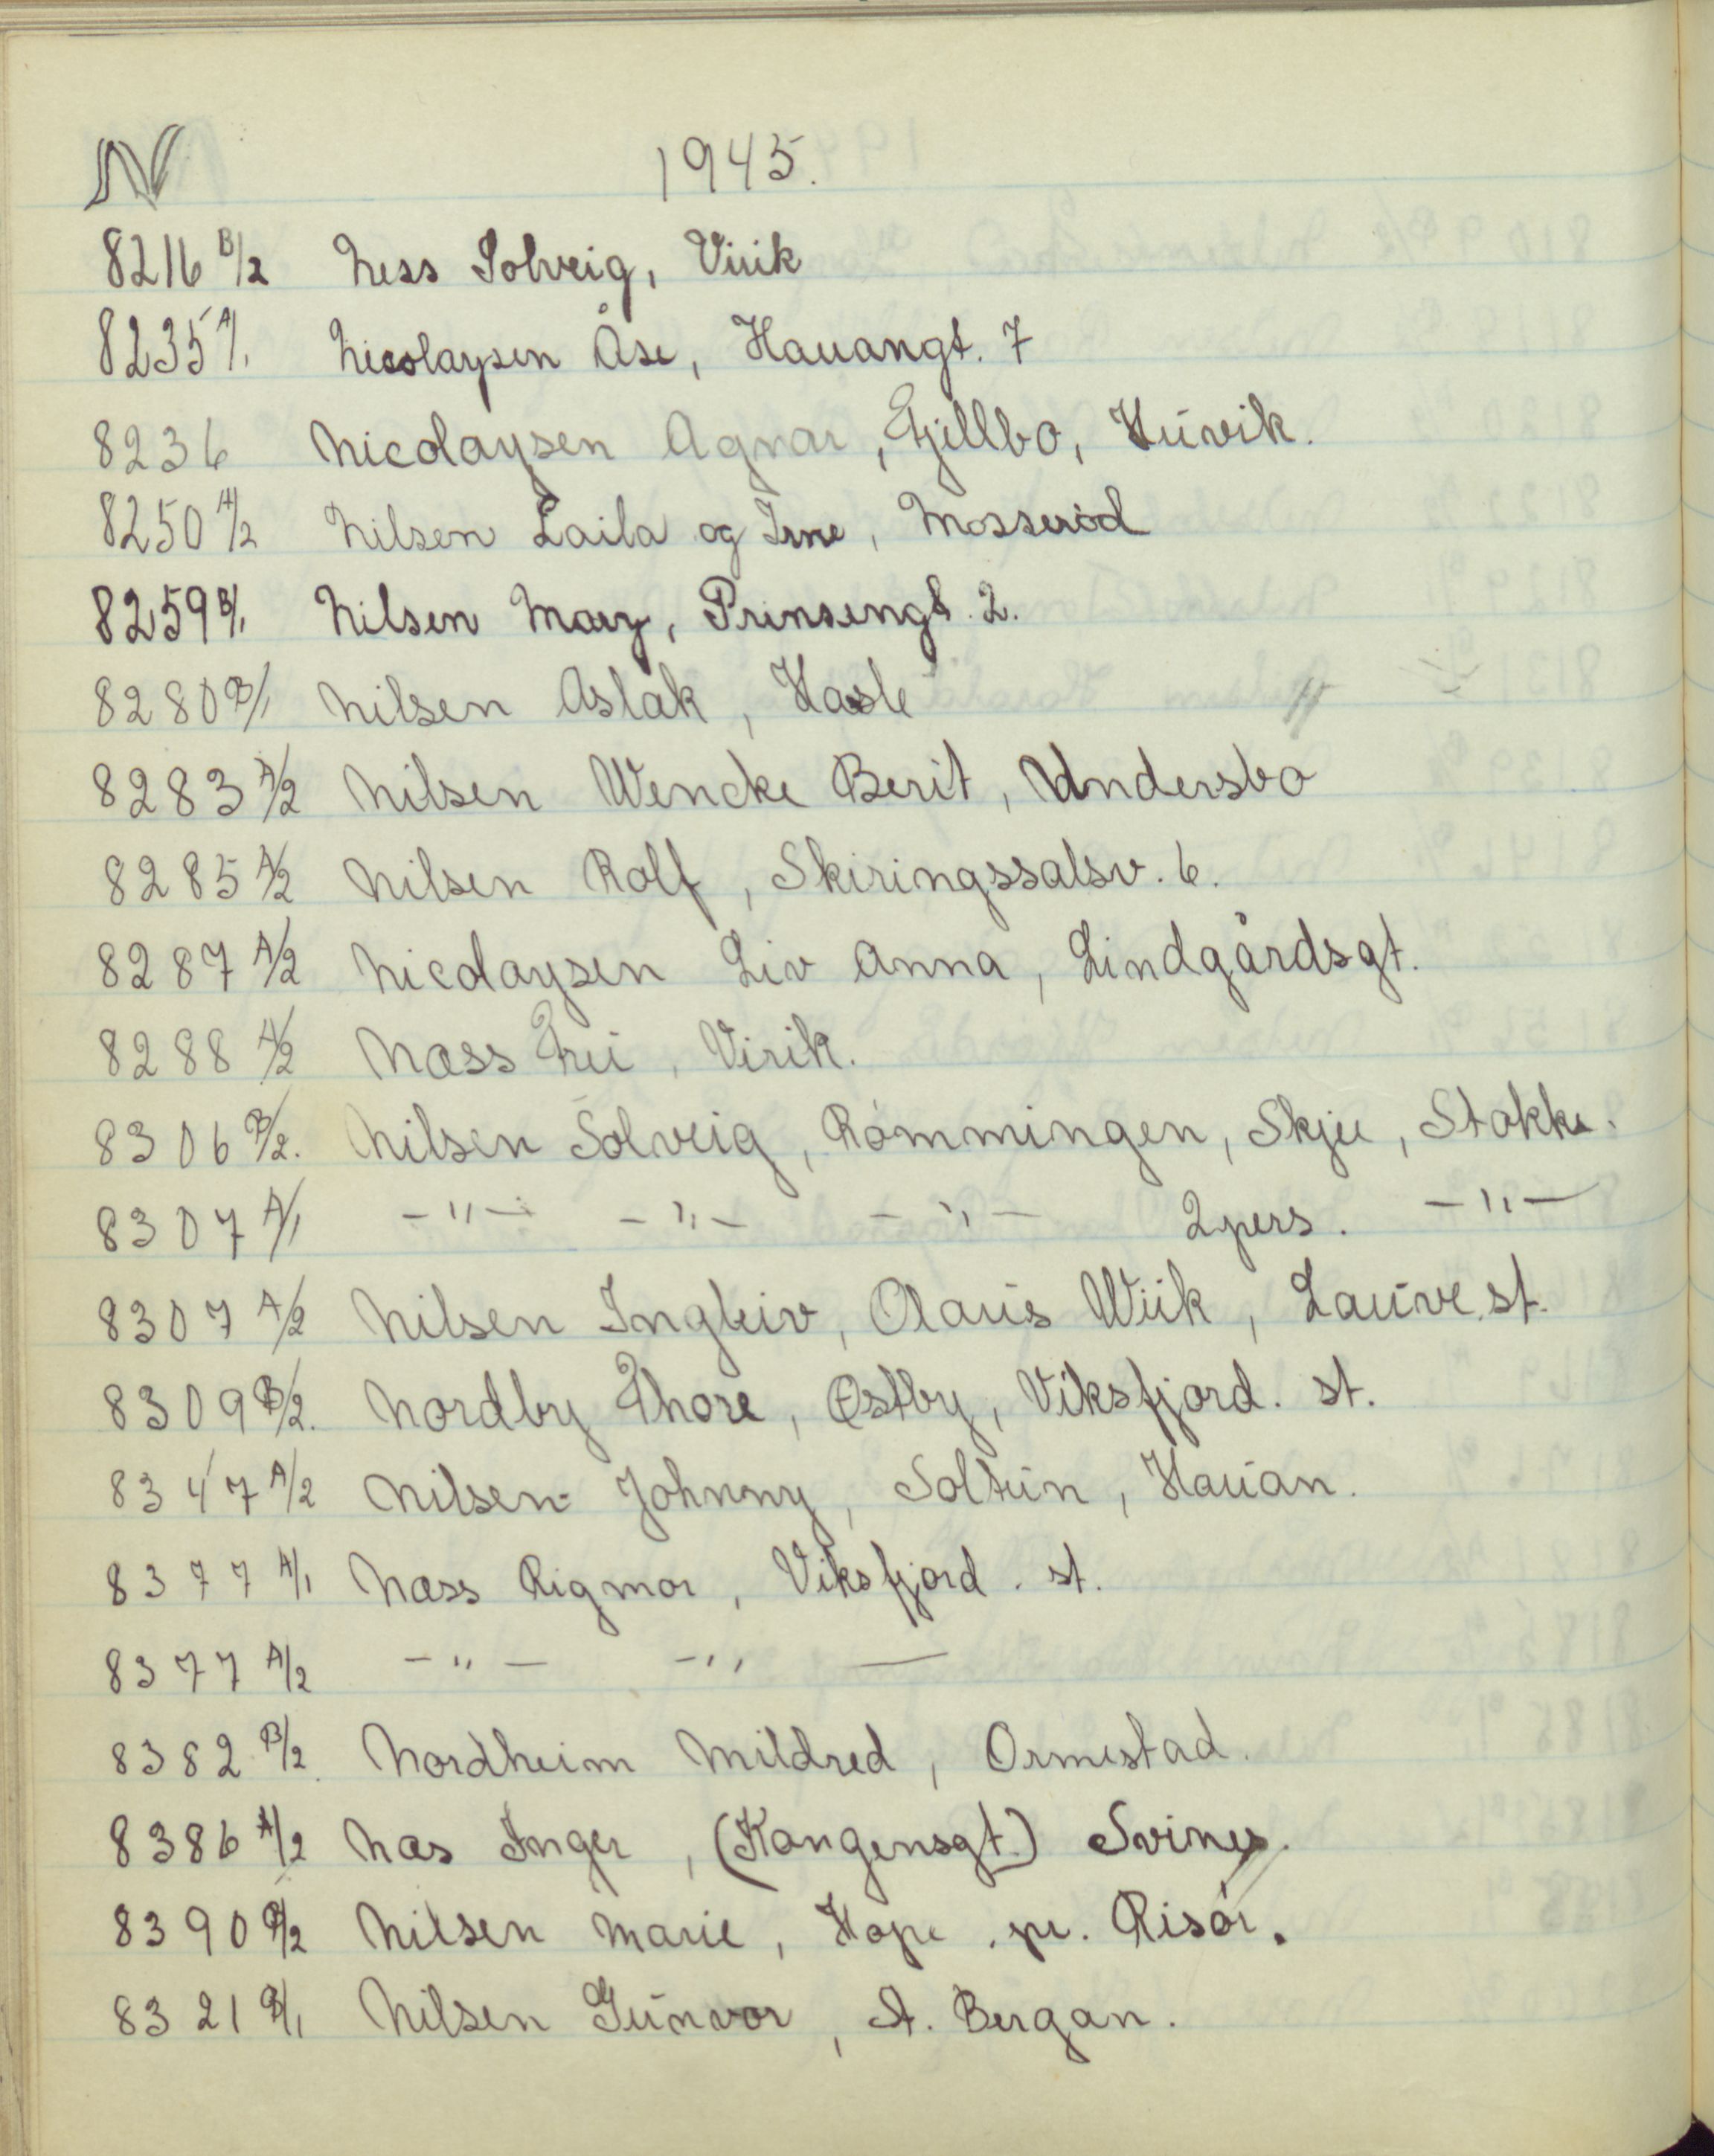 N 1945.
8216 B/2 Ness Solveig, Virik
8235 A/1. Nicolaysen Åse, Hauangt. 7
8236 Nicolaysen Agnar, Fjellbo, Huvik.
8250 A/2 Nilsen Laila og Irne, Mosserød
8259 B/1. Nilsen Mary, Prinsengt. 2.
8280 B/1 Nilsen Aslak, Hasle
8283 A/2 Nilsen Wencke Berit, Undersbo
8285 A/2 Nilsen Rolf, Skiringssalsv. 6.
8287 A/2 Nicolaysen Liv Anna, Lindgårdsgt.
8288 A/2 Næss Fru, Virik.
8306 B/2. Nilsen Solveig, Rømmingen, Skjee, Stokke.
8307 A/1 -"- -"- -"- 2 pers. -"-
8307 A/2 Nilsen Ingleiv, Olaus Wiik, Lauve st.
8309 B/2. Nordby Thore, Østby, Viksfjord. st.
8347 A/2 Nilsen Johnny, Soltun, Hauan.
8377 A/1 Næss Rigmor, Viksfjord. st.
8377 A/2 -"- -"-
8382 B/2. Nordheim Mildred, Ormestad.
8386 A/2 Næs Inger, (Kongensgt.) Svines.
8390 B/2 Nilsen Marie, Hope. pr. Risør.
8321 B/1 Nilsen Gunvor, St. Bergan.